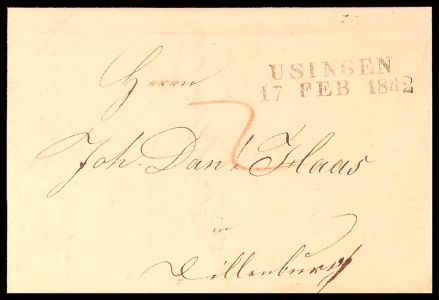 USINGEN
17 FEB 1842
Herrn
Joh. Dan! Haas
in
Dillenburg